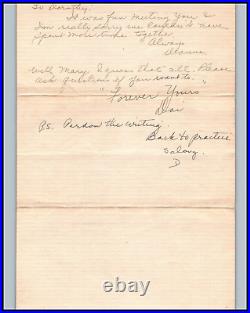 To Dorothy:
It was fun meeting you &
I'm really sorry we couldn't have
spent more time together.
Always
With Mary, I guess that's all. Please
ask questions if you want to.
"Forever Yours
Dai
PS. Pardon the writing
Back to practice
So long.
D